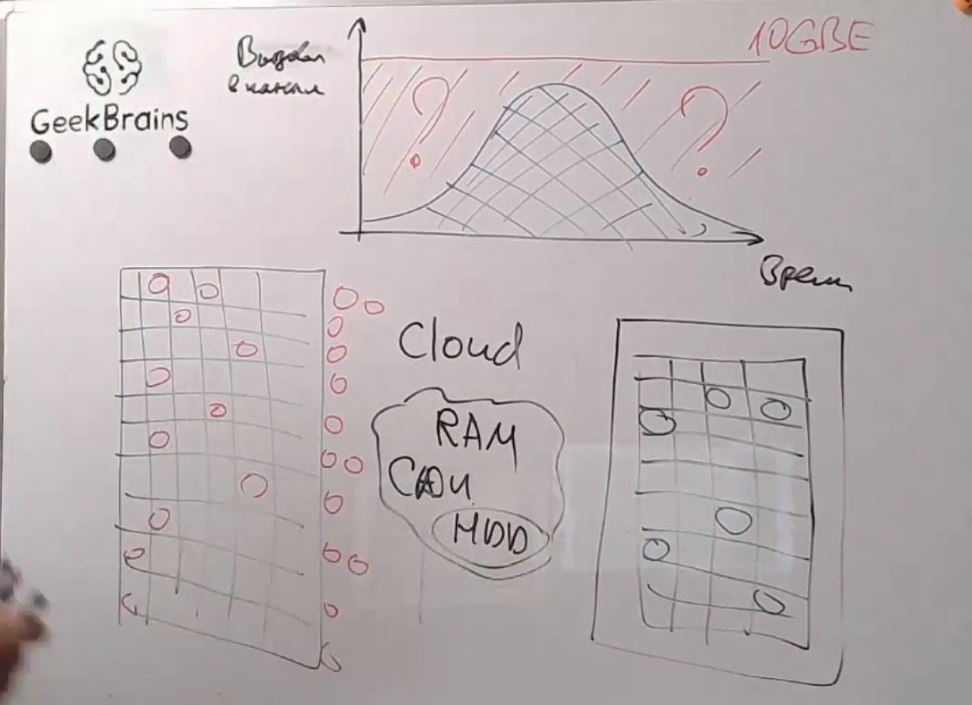 GeekBrains
в канал
10GBE
?
?
Время
Cloud
RAM
CPU
HDD